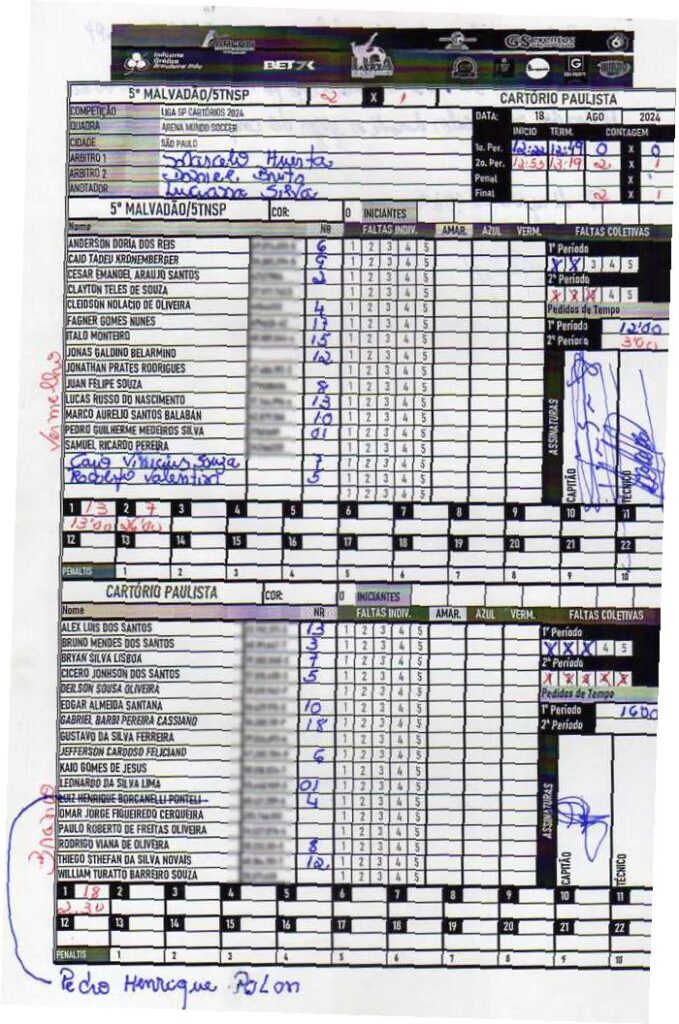 Indústria Gráfica Brasileira ltda
BET7K
LIGA
GS
5º MALVADÃO/5TNSP 2 X 1 CARTÓRIO PAULISTA
COMPETIÇÃO LIGA SP CARTÓRIOS 2024 DATA: 18 AGO 2024
QUADRA ARENA MUNDO SOCCER INICIO TÉRM. CONTAGEM
CIDADE SÃO PAULO 1o. Per. 0 X 0
ARBITRO 1 Marcelo Huerta 2o. Per. 12:53 13:19 2 X 1
ARBITRO 2 Daniel Brito Penal X
ANOTADOR Luciana Silva Final 2 X 1
5º MALVADÃO/5TNSP COR: 0 INICIANTES
Nome NR FALTAS INDIV. AMAR. AZUL VERM. FALTAS COLETIVAS
ANDERSON DORIA DOS REIS 6 1 2 3 4 5 1º Período
CAIO TADEU KRONEMBERGER 9 1 2 3 4 5 X X 3 4 5
CESAR EMANOEL ARAUJO SANTOS 2 1 2 3 4 5 2º Período
CLAYTON TELES DE SOUZA 1 2 3 4 5 X X X 4 5
CLEIDSON NOLACIO DE OLIVEIRA 4 1 2 3 4 5 Pedidos de Tempo
FAGNER GOMES NUNES 17 1 2 3 4 5 1º Período 12:00
ITALO MONTEIRO 15 1 2 3 4 5 2º Período 3:00
JONAS GALDINO BELARMINO 12 1 2 3 4 5
JONATHAN PRATES RODRIGUES 1 2 3 4 5
JUAN FELIPE SOUZA 8 1 2 3 4 5
LUCAS RUSSO DO NASCIMENTO 13 1 2 3 4 5
MARCO AURELIO SANTOS BALABÁN 10 1 2 3 4 5
PEDRO GUILHERME MEDEIROS SILVA 01 1 2 3 4 5
SAMUEL RICARDO PEREIRA 1 2 3 4 5
Caio Vinicius Souza 7 1 2 3 4 5
Rodolfo Valentin 5 1 2 3 4 5
1 2 3 4 5
Vermelho
ASSINATURAS
CAPITÃO
TÉCNICO
1 13 2 7 3 4 5 6 7 8 9 10 11
13:00 26:00
12 13 14 15 16 17 18 19 20 21 22
PENALTIS 1 2 3 4 5 6 7 8 9 10
CARTÓRIO PAULISTA COR: 0 INICIANTES
Nome NR FALTAS INDIV. AMAR. AZUL VERM. FALTAS COLETIVAS
ALEX LUIS DOS SANTOS 13 1 2 3 4 5 1º Período
BRUNO MENDES DOS SANTOS 3 1 2 3 4 5 X X X 4 5
BRYAN SILVA LISBOA 7 1 2 3 4 5 2º Período
CICERO JONHSON DOS SANTOS 5 1 2 3 4 5 X X X X X
DEILSON SOUSA OLIVEIRA 1 2 3 4 5 Pedidos de Tempo
EDGAR ALMEIDA SANTANA 10 1 2 3 4 5 1º Período 16:00
GABRIEL BARBI PEREIRA CASSIANO 18 1 2 3 4 5 2º Período
GUSTAVO DA SILVA FERREIRA 1 2 3 4 5
JEFFERSON CARDOSO FELICIANO 6 1 2 3 4 5
KAIO GOMES DE JESUS 1 2 3 4 5
LEONARDO DA SILVA LIMA 01 1 2 3 4 5
LUIZ HENRIQUE BORCANELLI PONTELI 4 1 2 3 4 5
OMAR JORGE FIGUEIREDO CERQUEIRA 1 2 3 4 5
PAULO ROBERTO DE FREITAS OLIVEIRA 1 2 3 4 5
RODRIGO VIANA DE OLIVEIRA 8 1 2 3 4 5
THIEGO STHEFAN DA SILVA NOVAIS 12 1 2 3 4 5
WILLIAM TURATTO BARREIRO SOUZA 1 2 3 4 5
Branco
ASSINATURAS
CAPITÃO
TÉCNICO
1 18 2 3 4 5 6 7 8 9 10 11
2:30
12 13 14 15 16 17 18 19 20 21 22
PENALTIS 1 2 3 4 5 6 7 8 9 10
Pedro Henrique Polon